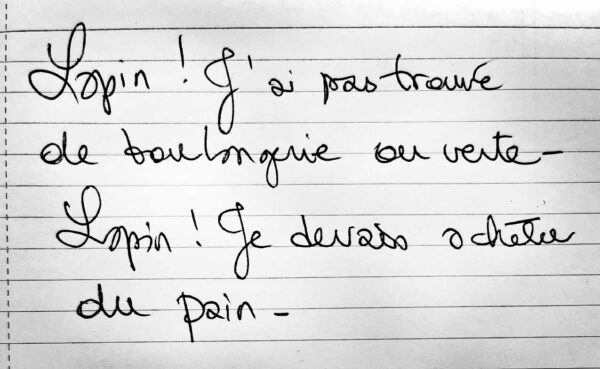 Lapin ! J'ai pas trouvé
de boulangerie ouverte -
Lapin ! Je devais acheter
du pain -